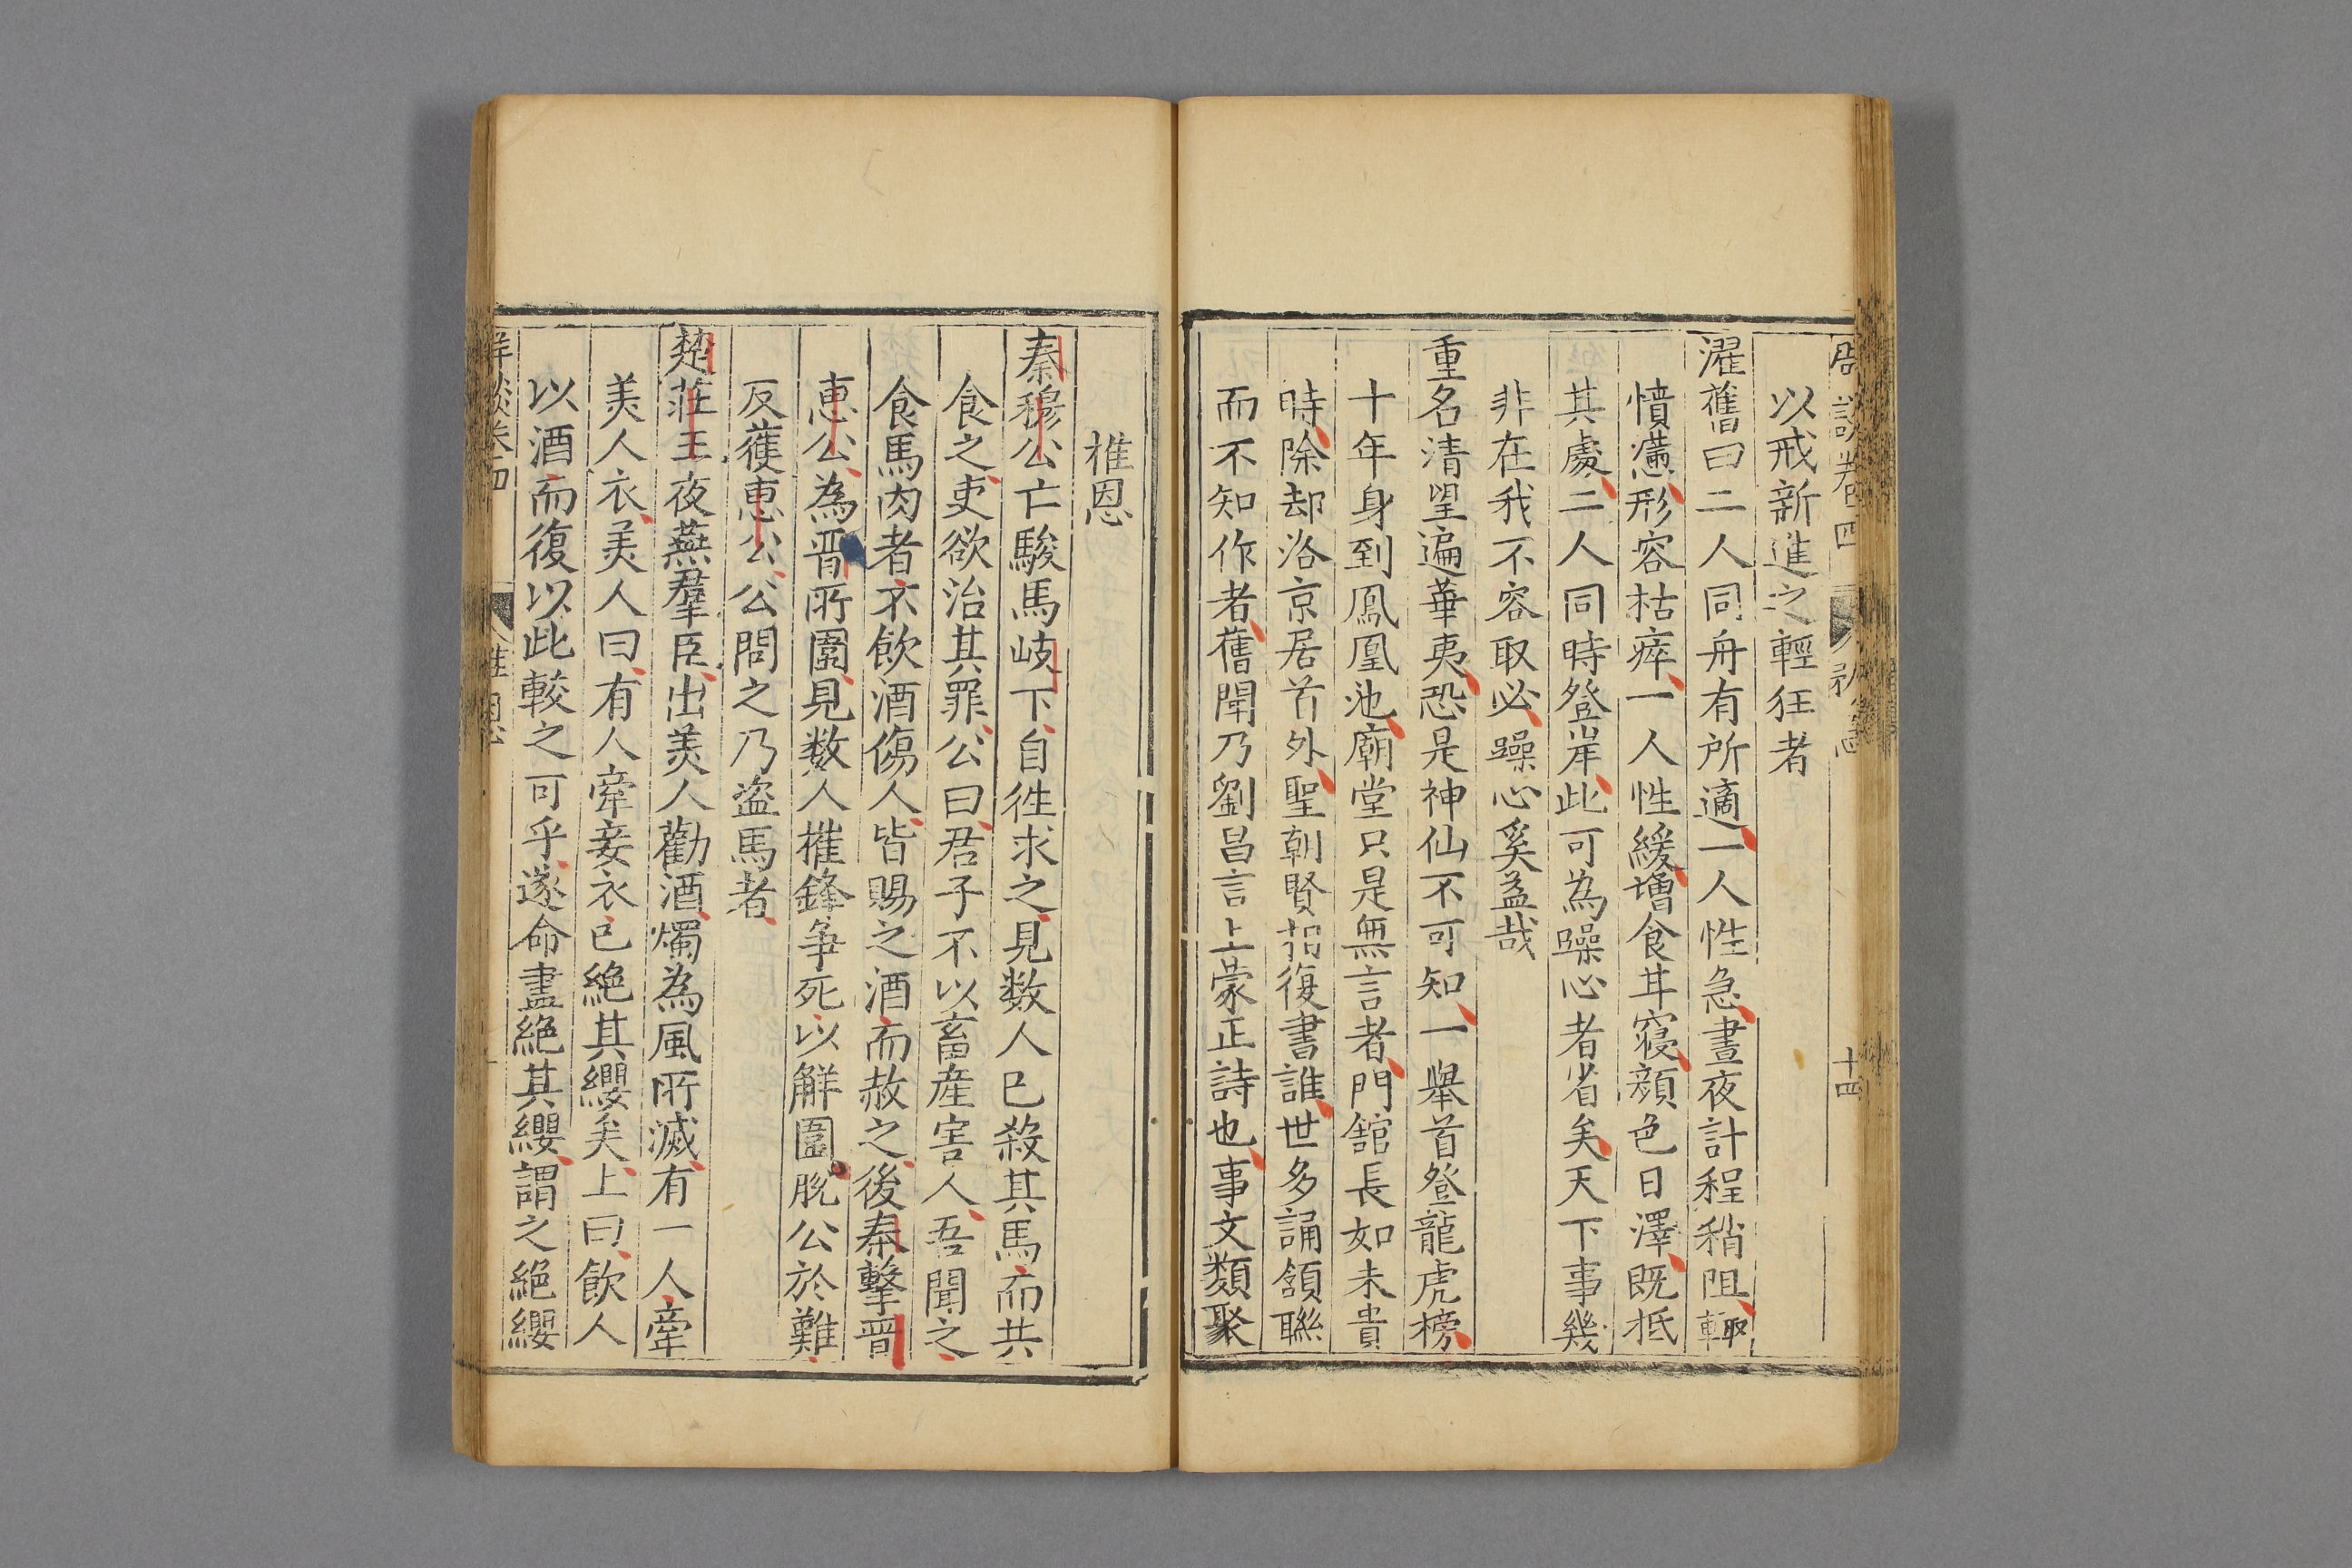 卷四 十四
以戒新進之輕狂者
濯舊曰二人同舟有所適一人性急晝夜計程稍阻輙
憤懣形容枯瘁一人性緩增食耳寢顏色日澤既抵
其處二人同時登岸此可為躁心者省矣天下事幾
非在我不容取必躁心奚益哉
重名清望遍華夷恐是神仙不可知一舉首登龍虎榜
十年身到鳳凰池廟堂只是無言者門舘長如未貴
時除却洛京居首外聖朝賢相復書誰世多誦頷聯
而不知作者舊聞乃劉昌言上蒙正詩也事文類聚
推恩
秦穆公亡駿馬岐下自徃求之見数人已殺其馬而共
食之吏欲治其罪公曰君子不以畜産害人吾聞之
食馬肉者不飲酒傷人皆賜之酒而赦之後秦擊晋
惠公為晋所圍見数人摧鋒争死以觧圍脫公於難
反獲惠公公問之乃盗馬者
楚莊王夜燕羣臣出美人勸酒燭為風所滅有一人牽
美人衣美人曰有人牽妾衣已絶其纓矣上曰飲人
以酒而復以此較之可乎遂命盡絶其纓謂之絶纓